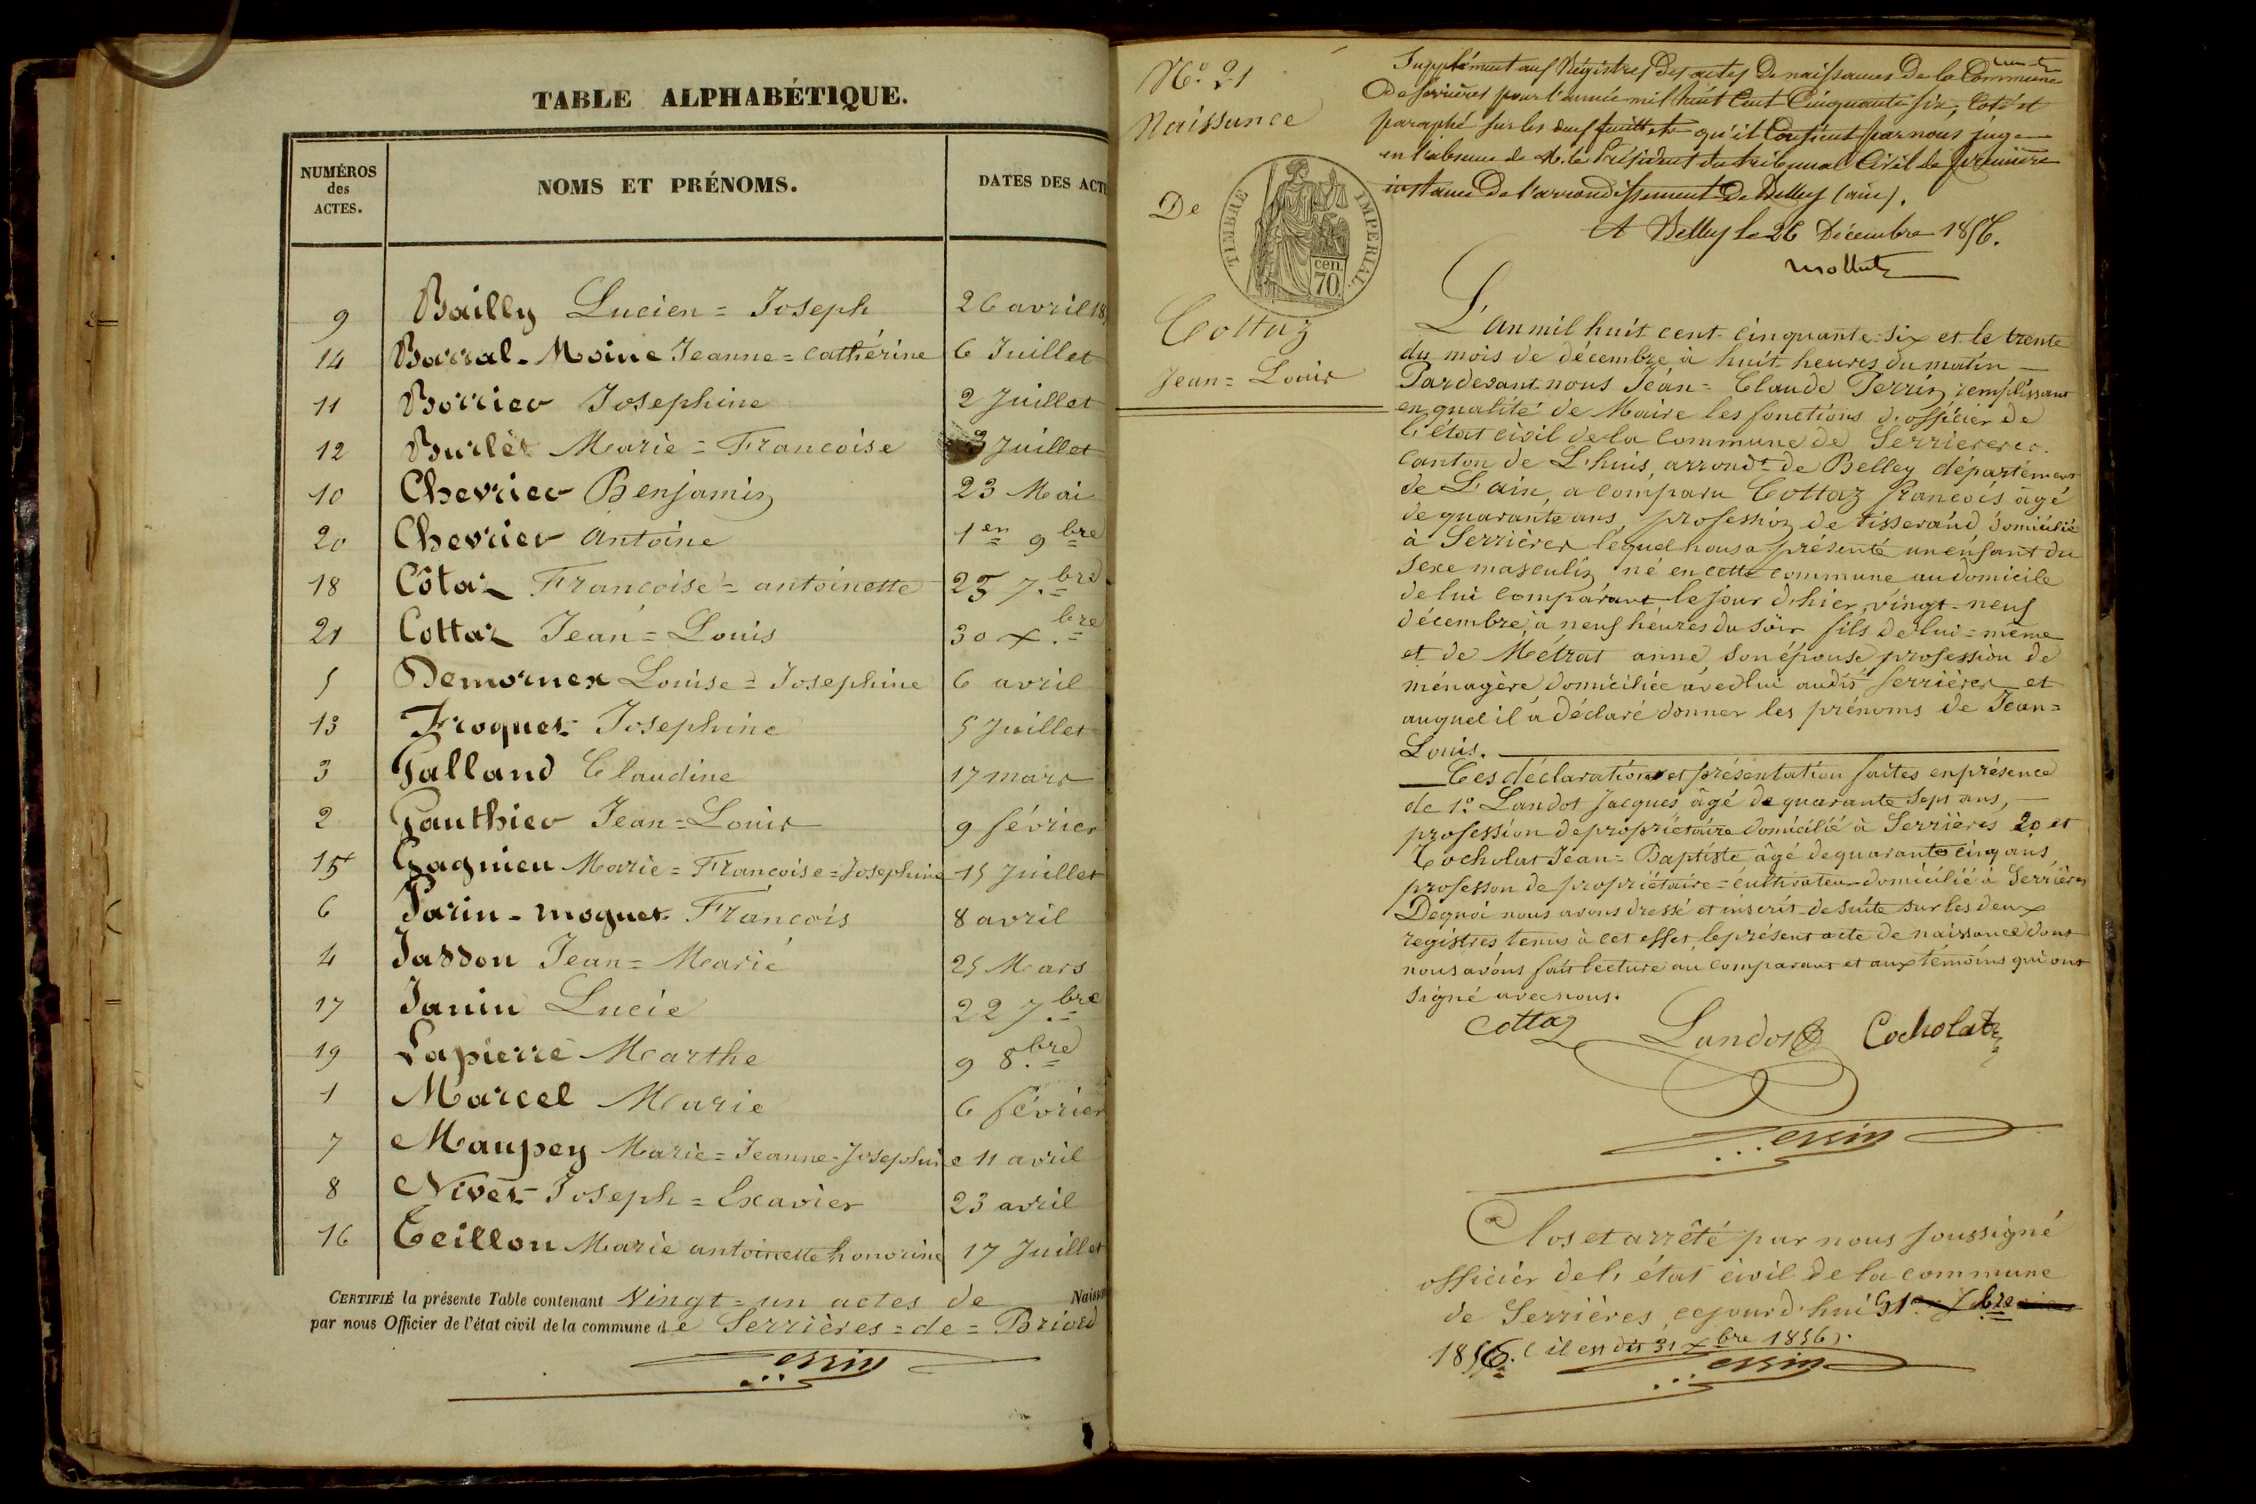 TABLE ALPHABÉTIQUE.
NUMÉROS des ACTES. NOMS ET PRÉNOMS. DATES DES ACTE
9 Bailly Lucien = Joseph 26 avril 18
14 Borral-Moine Jeanne = Cathérine 6 Juillet
11 Borrier Josephine 2 Juillet
12 Burlet Marie = Francoise 3 Juillet
10 Chevrier Benjamin 23 Mai
20 Chevrier antoine 1en 9bre
18 Côtaz Francoise = antoinette 25 7.bre
21 Cottaz Jean = Louis 30 x.bre
5 Demornex Louise = Josephine 6 avril
13 Froquet Josephine 5 Juillet
3 Galland Claudine 17 mars
2 Gauthier Jean = Louis 9 février
15 Gagnieu Marie = Francoise = Josephine 15 Juillet
6 Jarin-moguet Francois 8 avril
4 Jasson Jean = Marie 25 Mars
17 Janin Lucie 22 7.bre
19 Lapierre Marthe 9 8.bre
1 Marcel Marie 6 février
7 Maupey Marie = Jeanne = Josephine 11 avril
8 Nivet Joseph = Exavier 23 avril
16 Teillon Marie antoinette honorine 17 Juillet
CERTIFIÉ la présente Table contenant Vingt = un actes de Naissa
par nous Officier de l'état civil de la commune de Serrières = de = Briord
Perrin
N.o 21
Naissance
De
TIMBRE IMPERIAL
cen. 70.
Cottaz
Jean = Louis
Supplément aux Régistres des actes de naissances de la Commune
de Serrières pour l'année mil huit Cent Cinquante six, Coté et
paraphé sur les deux feuillets qu'il Contient par nous juge
en l'absence de M. le Président du tribunal Civil de première
instance de l'arrondissement de Belley (ain).
A Belley le 26 Décembre 1856.
L'an mil huit cent cinquante-six et le trente
du mois de décembre à huit heures du matin
Pardevant nous Jéan = Claude Perrin remplissant
en qualité de Maire les fonctions d'officier de
l'état civil de la commune de Serrieres
canton de L'huis, arrondt de Belley département
de L'ain, a comparu Cottaz françois âgé
de quarante ans, profession de tisserand domicilié
à Serrières lequel nous a présenté un enfant du
sexe masculin né en cette commune au domicile
de lui comparant le jour d'hier vingt-neuf
décembre à neuf heures du soir fils de lui = même
et de Métrat anne, son épouse profession de
ménagère domiciliée avec lui audit Serrières et
auquel il a déclaré donner les prénoms de Jean =
Louis.
Ces déclaration et présentation faites en présence
de 1.o Landot Jacques âgé de quarante sept ans,
profession de propriétaire domicilié à Serrières 2o et
Cocholat Jean = Baptiste âgé de quarante cinq ans
professon de propriétaire = cultivateur domicilié à Serrières
Dequoi nous avons dressé et inscrit de suite sur les deux
registres tenus à cet effet le présent acte de naissance dont
nous avons fait lecture au comparant et aux témoins qui ont
signé avec nous.
Cottaz Landot Cocholat
Perrin
Clos et arrêté par nous soussigné
officier de l'état civil de la commune
de Serrières, cejourd'hui 31
1856. (il en dit 31 xbre 1856).
Perrin